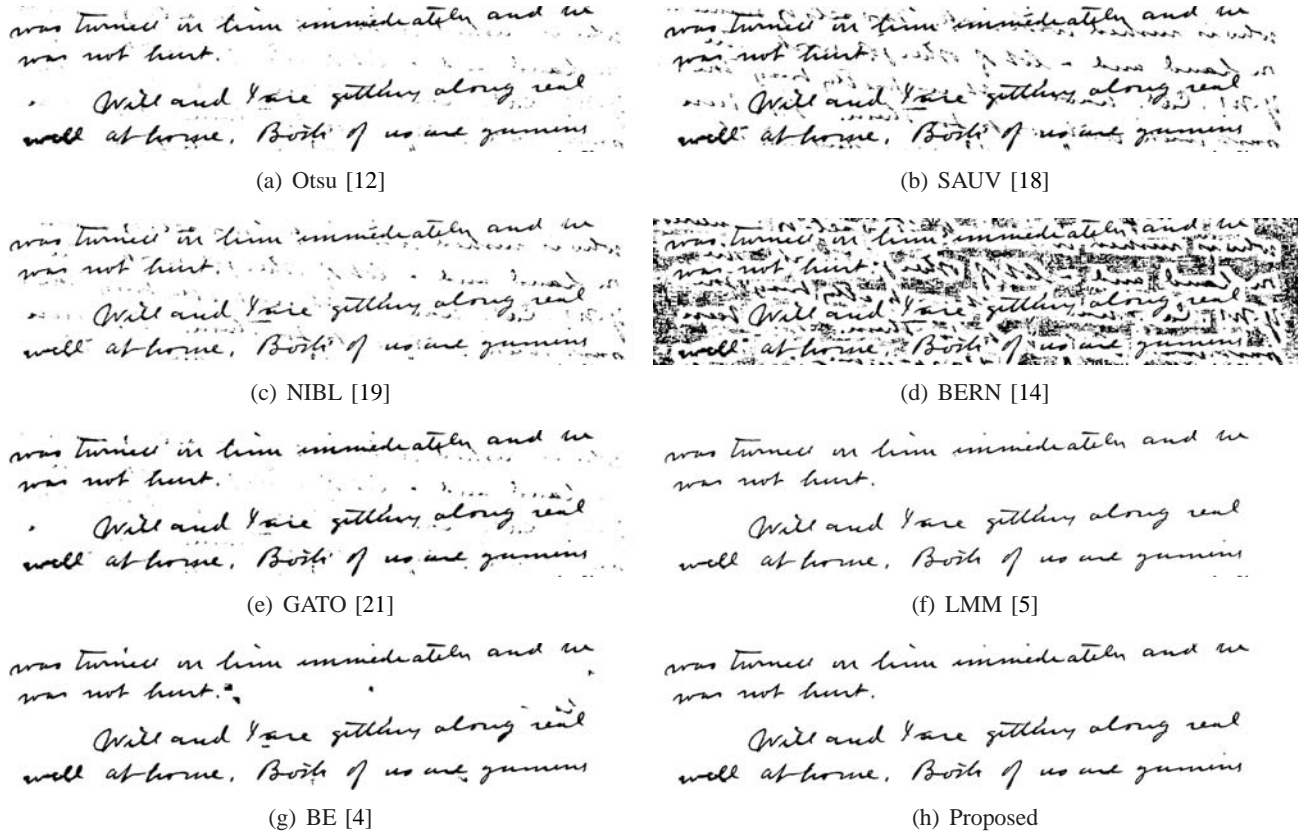 was turned on him immediately and he
was not hurt.
Will and I are getting along real
well at home. Both of us are gaining
(a) Otsu [12]
was turned on him immediately and he
was not hurt.
Will and I are getting along real
well at home. Both of us are gaining
(b) SAUV [18]
was turned on him immediately and he
was not hurt.
Will and I are getting along real
well at home. Both of us are gaining
(c) NIBL [19]
was turned on him immediately and he
was not hurt.
Will and I are getting along real
well at home. Both of us are gaining
(d) BERN [14]
was turned on him immediately and he
was not hurt.
Will and I are getting along real
well at home. Both of us are gaining
(e) GATO [21]
was turned on him immediately and he
was not hurt.
Will and I are getting along real
well at home. Both of us are gaining
(f) LMM [5]
was turned on him immediately and he
was not hurt.
Will and I are getting along real
well at home. Both of us are gaining
(g) BE [4]
was turned on him immediately and he
was not hurt.
Will and I are getting along real
well at home. Both of us are gaining
(h) Proposed